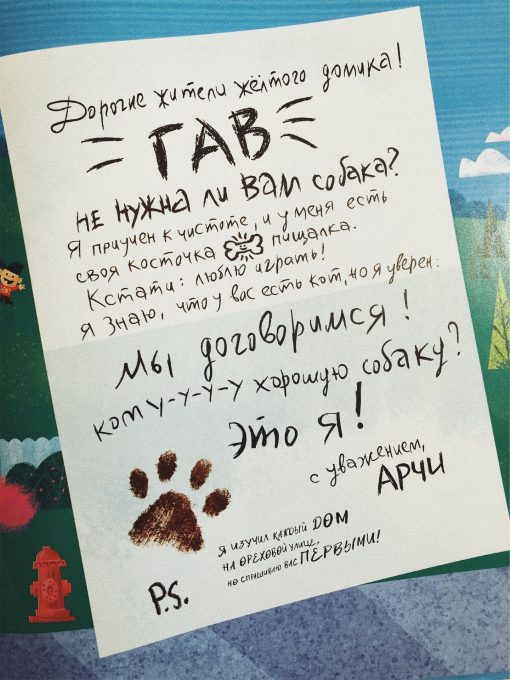 Дорогие жители жёлтого домика!
ГАВ
НЕ НУЖНА ЛИ ВАМ собака?
Я приучен к чистоте, и у меня есть
своя косточка пищалка.
Кстати: люблю играть!
Я знаю, что у вас есть кот, но я уверен:
Мы договоримся!
кому-у-у-у хорошую собаку?
Это я!
с уважением,
АРЧИ
P.S.
Я ИЗУЧИЛ КАЖДЫЙ ДОМ
НА ОРЕХОВОЙ УЛИЦЕ,
НО СПРАШИВАЮ ВАС ПЕРВЫМИ!